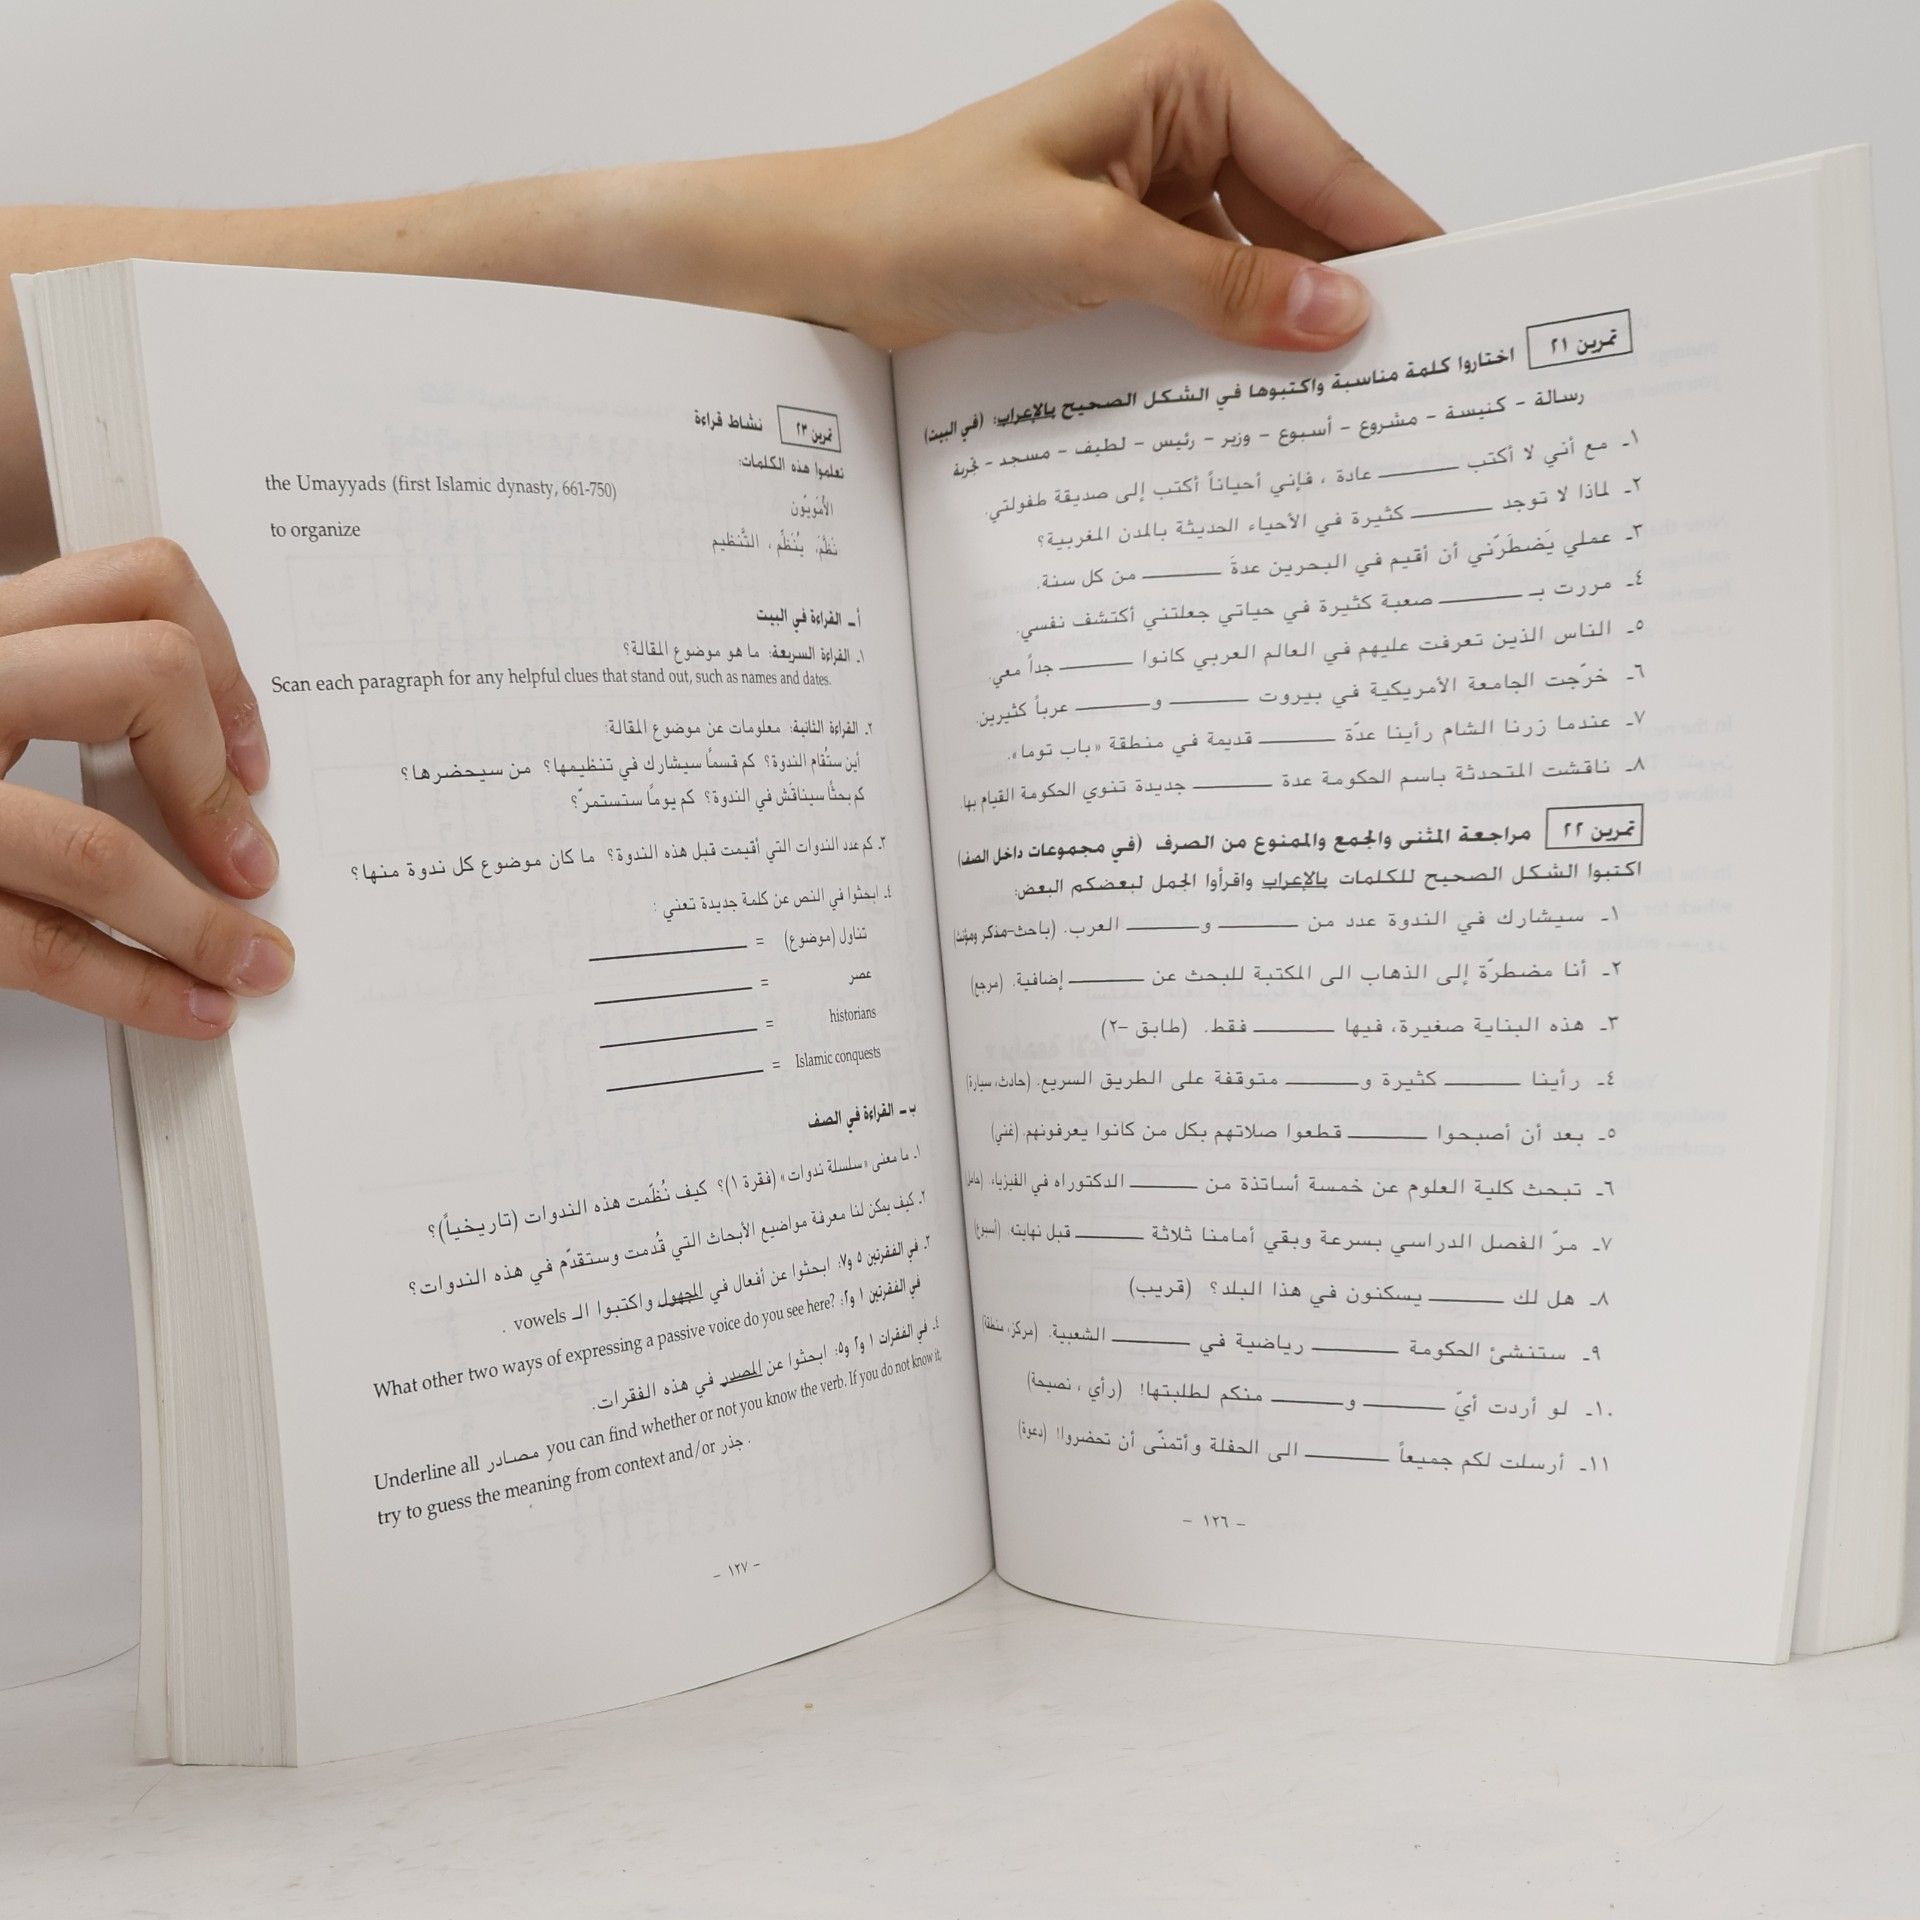 تمرين ٢١ اختاروا كلمة مناسبة واكتبوها في الشكل الصحيح بالإعراب: (في البيت)
رسالة - كنيسة - مشروع - أسبوع - وزير - رئيس - لطيف - مسجد - تجربة
١ـ مع أني لا أكتب ـــــــــ عادة ، فإني أحياناً أكتب إلى صديقة طفولتي.
٢ـ لماذا لا توجد ـــــــــ كثيرة في الأحياء الحديثة بالمدن المغربية؟
٣ـ عملي يَضطَرّني أن أقيم في البحرين عدةَ ـــــــــ من كل سنة.
٤ـ مررت بـ ـــــــــ صعبة كثيرة في حياتي جعلتني أكتشف نفسي.
٥ـ الناس الذين تعرفت عليهم في العالم العربي كانوا ـــــــــ جداً معي.
٦ـ خرّجت الجامعة الأمريكية في بيروت ـــــــــ و ـــــــــ عرباً كثيرين.
٧ـ عندما زرنا الشام رأينا عدّة ـــــــــ قديمة في منطقة «باب توما».
٨ـ ناقشت المتحدثة باسم الحكومة عدة ـــــــــ جديدة تنوي الحكومة القيام بها.
تمرين ٢٢ مراجعة المثنى والجمع والممنوع من الصرف (في مجموعات داخل الصف)
اكتبوا الشكل الصحيح للكلمات بالإعراب واقرأوا الجمل لبعضكم البعض:
١ـ سيشارك في الندوة عدد من ـــــــــ و ـــــــــ العرب. (باحث-مذكر ومؤنث)
٢ـ أنا مضطرّة إلى الذهاب الى المكتبة للبحث عن ـــــــــ إضافية. (مرجع)
٣ـ هذه البناية صغيرة، فيها ـــــــــ فقط. (طابق -٢)
٤ـ رأينا ـــــــــ كثيرة و ـــــــــ متوقفة على الطريق السريع. (حادث، سيارة)
٥ـ بعد أن أصبحوا ـــــــــ قطعوا صلاتهم بكل من كانوا يعرفونهم. (غني)
٦ـ تبحث كلية العلوم عن خمسة أساتذة من ـــــــــ الدكتوراه في الفيزياء. (حامل)
٧ـ مرّ الفصل الدراسي بسرعة وبقي أمامنا ثلاثة ـــــــــ قبل نهايته. (أسبوع)
٨ـ هل لك ـــــــــ يسكنون في هذا البلد؟ (قريب)
٩ـ ستنشئ الحكومة ـــــــــ رياضية في ـــــــــ الشعبية. (مركز، منطقة)
١٠ـ لو أردت أيّ ـــــــــ و ـــــــــ منكم لطلبتها! (رأي ، نصيحة)
١١ـ أرسلت لكم جميعاً ـــــــــ الى الحفلة وأتمنّى أن تحضروا! (دعوة)
- ١٢٦ -
تمرين ٢٣ نشاط قراءة
تعلموا هذه الكلمات:
الأُمَويّون the Umayyads (first Islamic dynasty, 661-750)
نَظَّمَ، يُنَظِّم ، التَّنظيم to organize
أ ـ القراءة في البيت
١ـ القراءة السريعة: ما هو موضوع المقالة؟
Scan each paragraph for any helpful clues that stand out, such as names and dates.
٢ـ القراءة الثانية: معلومات عن موضوع المقالة:
أين ستُقام الندوة؟ كم قسماً سيشارك في تنظيمها؟ من سيحضرها؟
كم بحثًا سيناقَش في الندوة؟ كم يومًا ستستمرّ؟
٣ـ كم عدد الندوات التي أقيمت قبل هذه الندوة؟ ما كان موضوع كل ندوة منها؟
٤ـ ابحثوا في النص عن كلمة جديدة تعني :
تناول (موضوع) = ـــــــــ
عصر = ـــــــــ
historians = ـــــــــ
Islamic conquests = ـــــــــ
ب ـ القراءة في الصف
١ـ ما معنى «سلسلة ندوات» (فقرة ١)؟ كيف نُظّمت هذه الندوات (تاريخياً)؟
٢ـ كيف يمكن لنا معرفة مواضيع الأبحاث التي قُدمت وستقدّم في هذه الندوات؟
٣ـ في الفقرتين ٥ و٧: ابحثوا عن أفعال في المجهول واكتبوا الـ vowels .
في الفقرتين ١ و٢: What other two ways of expressing a passive voice do you see here?
٤ـ في الفقرات ١ و٢ و٥: ابحثوا عن المصدر في هذه الفقرات.
Underline all مصادر you can find whether or not you know the verb. If you do not know it,
try to guess the meaning from context and/or جذر .
- ١٢٧ -